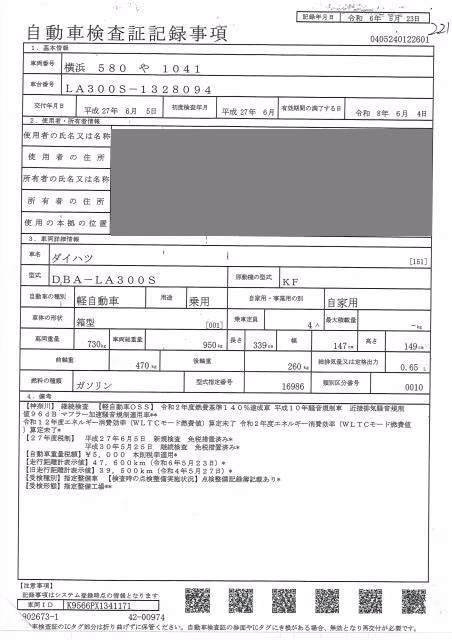 記録年月日 令和 6年 5月 23日
自動車検査証記録事項
0405240122601
221
1. 基本情報
車両番号 横浜 580 や 1041
車台番号 LA300S-1328094
交付年月日 平成 27年 6月 5日 初度検査年月 平成 27年 6月 有効期間の満了する日 令和 8年 6月 4日
2. 使用者・所有者情報
使用者の氏名又は名称
使用者の住所
所有者の氏名又は名称
所有者の住所
使用の本拠の位置
3. 車両詳細情報
車名 ダイハツ [151]
型式 DBA-LA300S 原動機の型式 KF
自動車の種別 軽自動車 用途 乗用 自家用・事業用の別 自家用
車体の形状 箱型 [001] 乗車定員 4人 最大積載量 -kg
車両重量 730kg 車両総重量 950kg 長さ 339cm 幅 147cm 高さ 149cm
前軸重 470kg 後軸重 260kg 総排気量又は定格出力 0.65 L
燃料の種類 ガソリン 型式指定番号 16986 類別区分番号 0010
4. 備考
【神奈川】 継続検査 【軽自動車OSS】 令和2年度燃費基準140%達成車 平成10年騒音規制車 近接排気騒音規制
値96dB マフラー加速騒音規制適用車**
令和12年度エネルギー消費効率(WLTCモード燃費値)算定未了 令和2年度エネルギー消費効率(WLTCモード燃費値
)算定未了*
【27年度税制】 平成27年6月5日 新規検査 免税措置済み*
平成30年5月25日 継続検査 免税措置済み*
【自動車重量税額】¥5,000 本則税率適用*
【走行距離計表示値】47,600km(令和6年5月23日)*
【旧走行距離計表示値】39,500km(令和4年5月27日)*
【受検種別】指定整備車 【検査時の点検整備実施状況】点検整備記録簿記載あり*
【受検形態】指定整備工場**
【注意事項】
記載事項はシステム登録時点の情報となります
車両ID K9566PX1341171
902673-1 42-00974
車検査証のICタグ部分は折り曲げずに保管ください。自動車検査証の券面やICタグにき損がある場合、無効となり再交付が必要です。